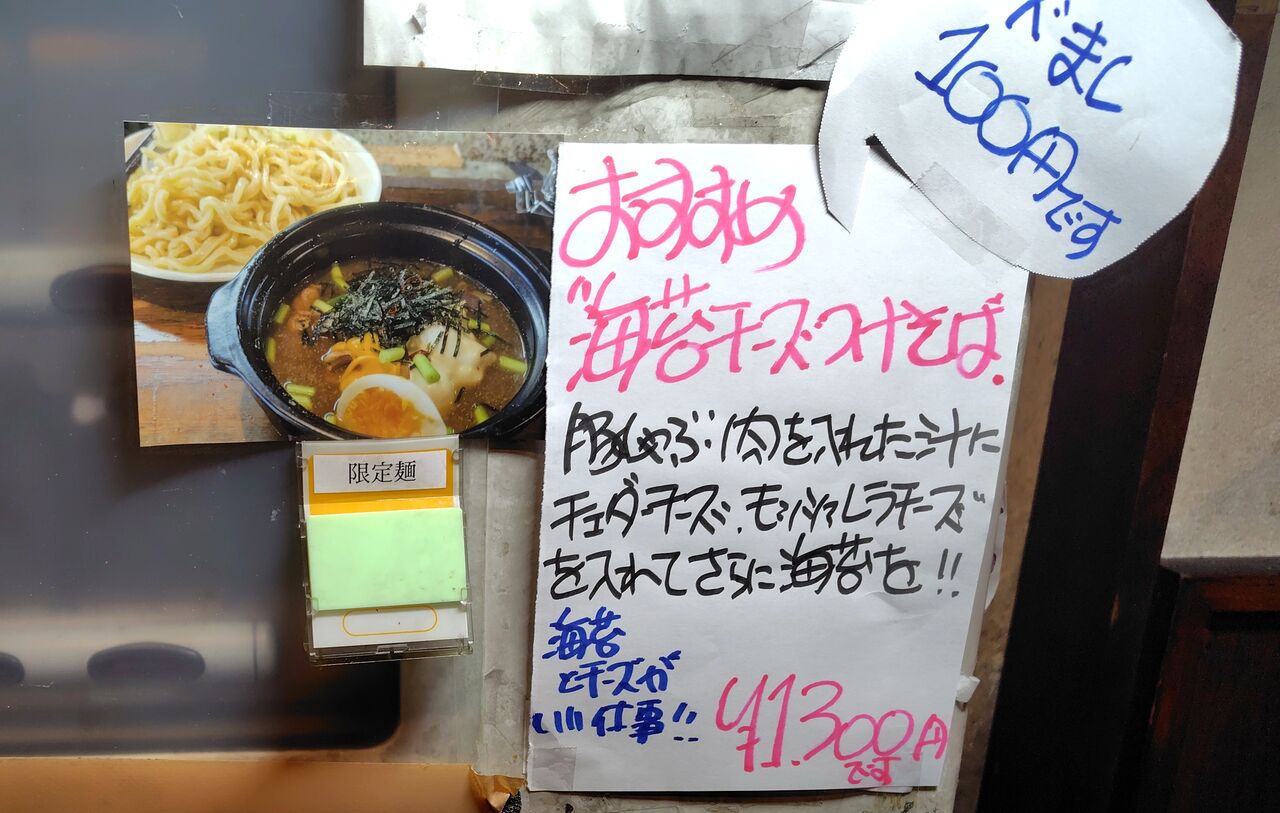 ずまし
100円です
おすすめ
"海苔チーズつけそば.
豚しゃぶ肉を入れた汁に
チェダーチーズ、モッツァレラチーズ
を入れてさらに海苔を!!
海苔
とチーズが
いい仕事!!
¥1.300円
です
限定麺